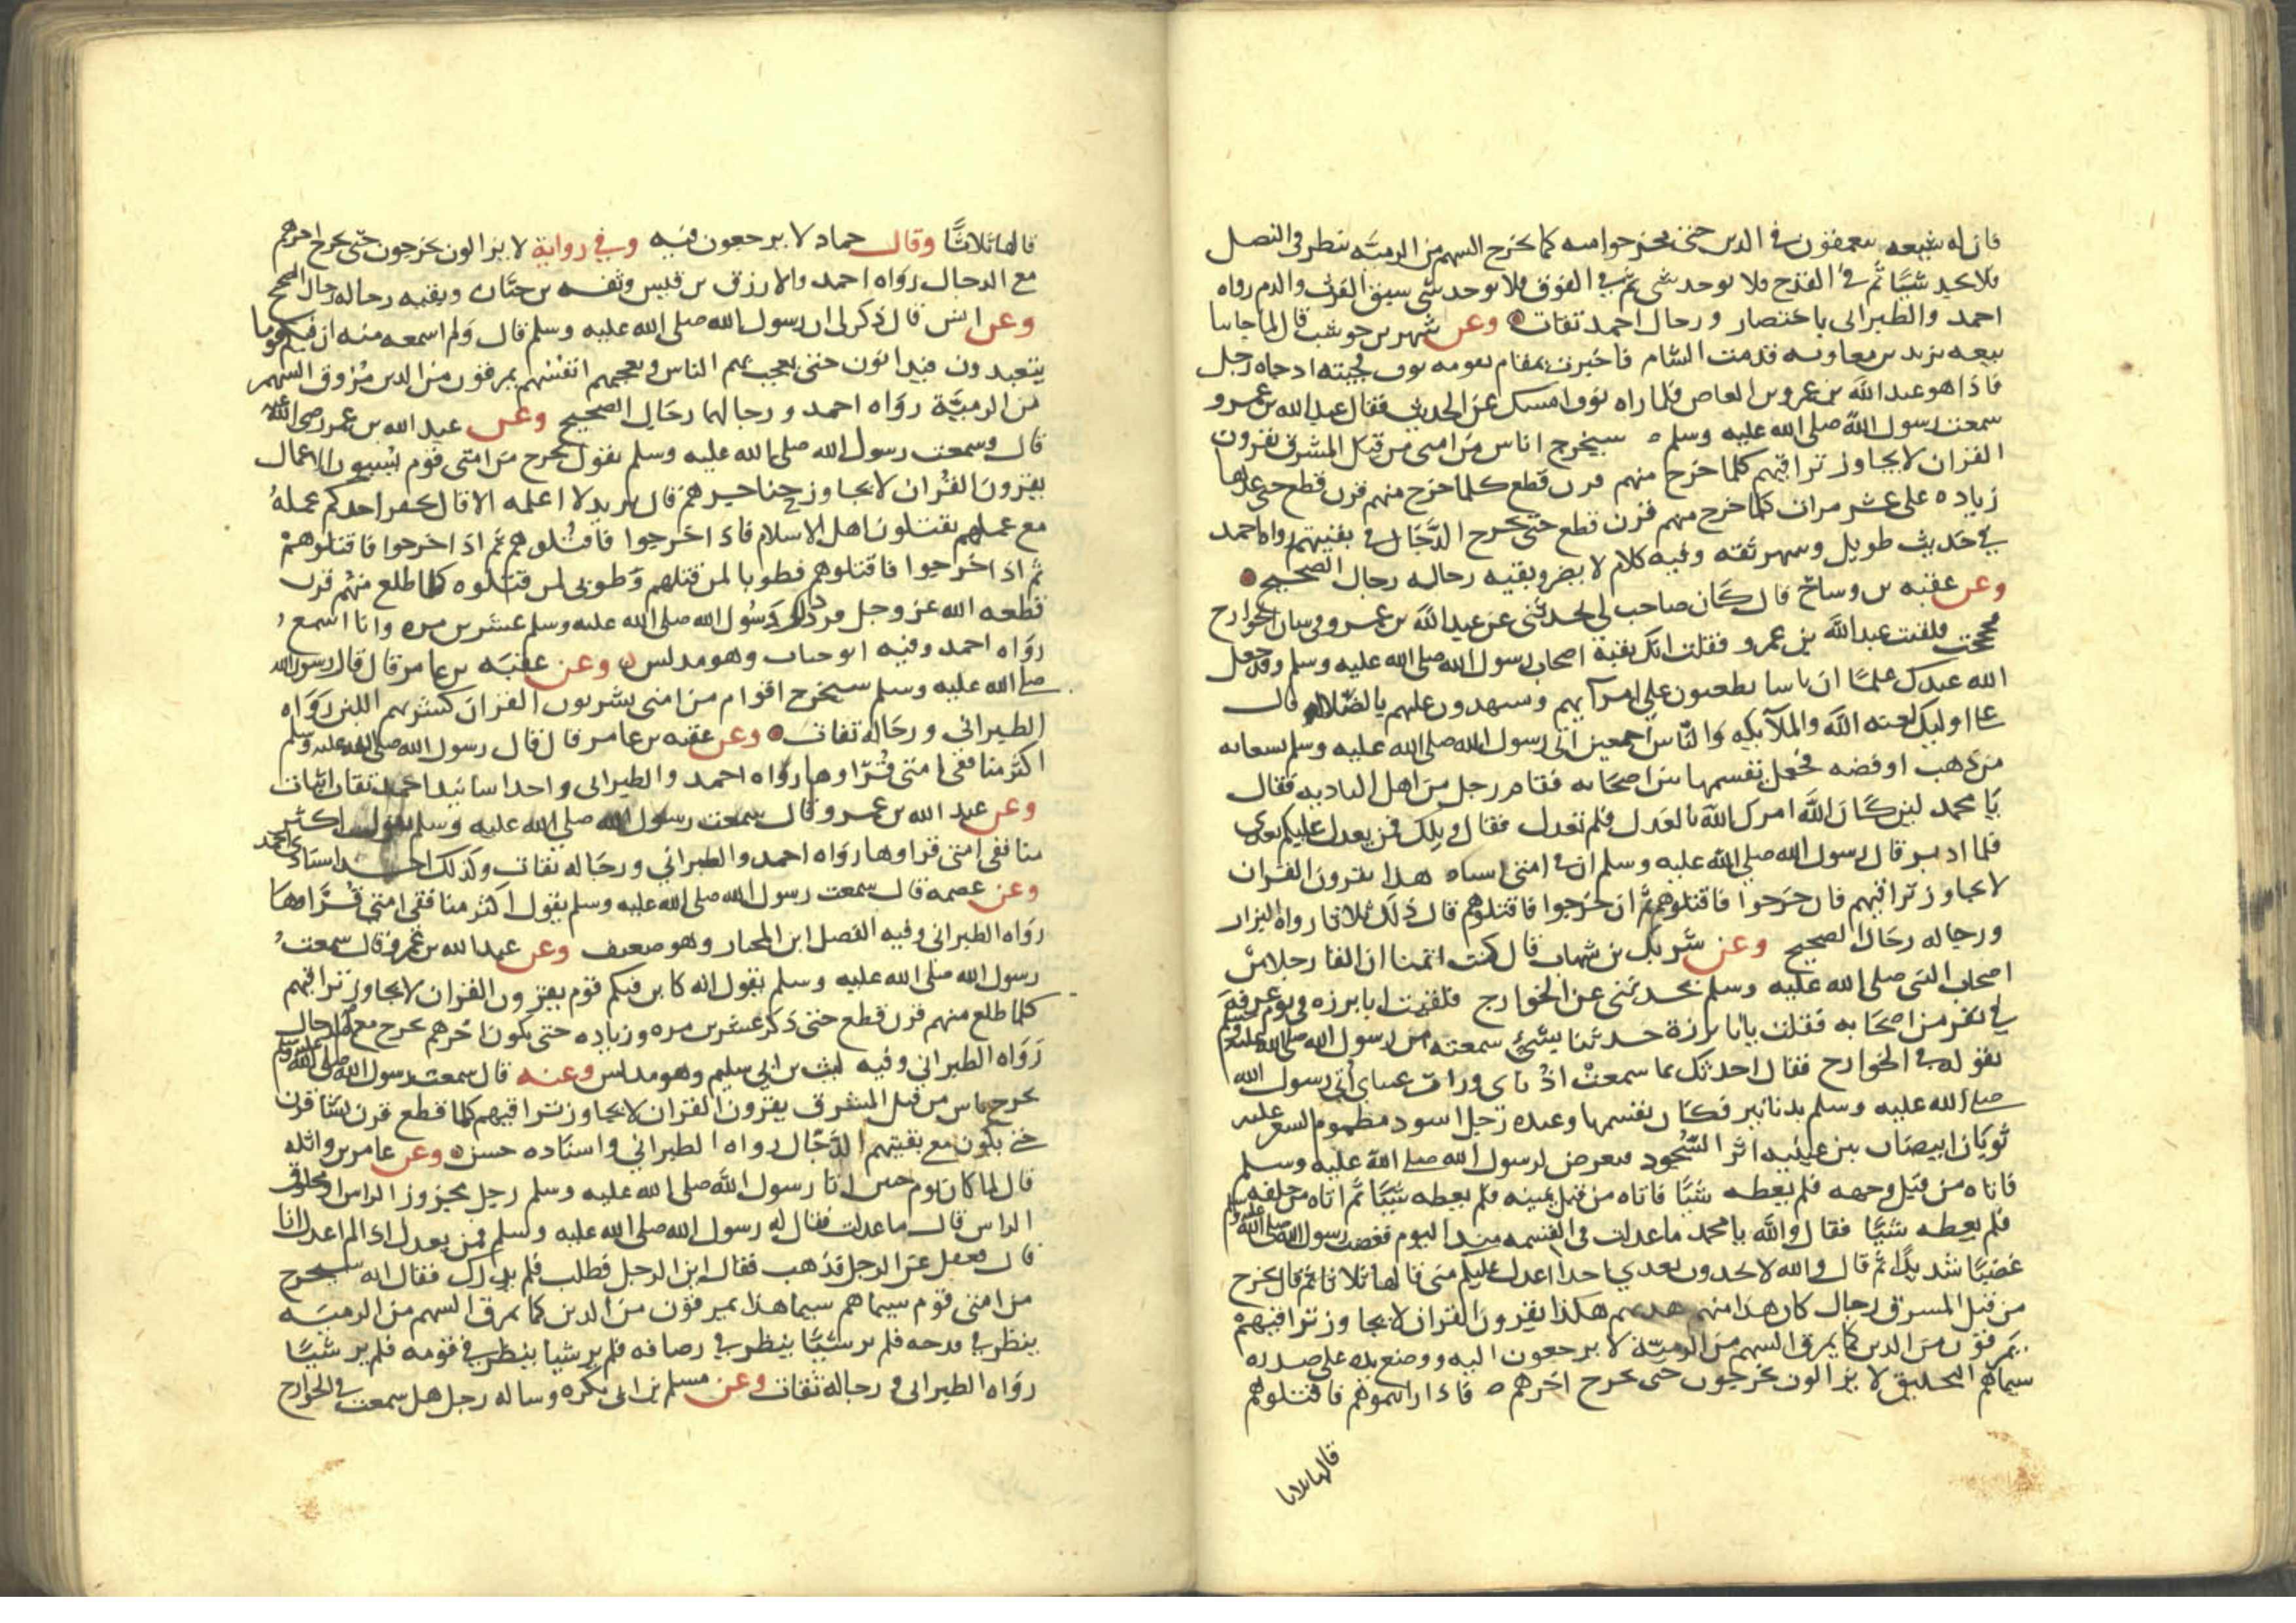 فان له شيعه يتعمقون في الدين حتى يخرجوا منه كما يخرج السهم من الرميّه ينظر في النصل
فلا يجد شيئًا ثم في القدح فلا يوجد شي ثم في الفوق فلا يوجد شي سبق الفرث والدم رواه
احمد والطبراني باختصار ورجال احمد ثقات وعن شهر بن حوشب قال لما جاتنا
بيعه يزيد بن معاويه قدمت الشام فاخبرت بمقام يقومه نوف فجيته اذ جاه رجل
فاذا هو عبد الله بن عمرو بن العاص فلما راه نوف امسك عن الحديث فقال عبد الله بن عمرو
سمعت رسول الله صلى الله عليه وسلم سيخرج اناس من امتى من قبل المشرق يقرون
القران لا يجاوز تراقيهم كلما خرج منهم قرن قطع كلما خرج منهم قرن قطع حتى عدها
زياده على عشر مرات كلما خرج منهم قرن قطع حتى يخرج الدّجّال في بقيتهم رواه احمد
في حديث طويل وشهر ثقه وفيه كلام لا يضر وبقيه رجاله رجال الصحيح
وعن عقبه بن وساج قال كان صاحب لي يحدثني عن عبد الله بن عمرو في شان الخوارج
فحججت فلقيت عبد الله بن عمرو فقلت انك بقية اصحاب رسول الله صلى الله عليه وسلم وقد جعل
الله عندك علمًا ان ناسا يطعنون على امرايهم ويشهدون عليهم بالضّلاله قال
على اوليك لعنة الله والملآيكه والنّاس اجمعين اتى رسول الله صلى الله عليه وسلم بسقايه
من ذهب او فضه فجعل يقسمها بين اصحابه فقام رجل من اهل الباديه فقال
يا محمد لين كان الله امرك الله بالعدل فلم تعدل فقال ويلك فمن يعدل عليكم بعدى
فلما ادبر قال رسول الله صلى الله عليه وسلم ان في امتى اشباه هذا يقرون القران
لا يجاوز تراقيهم فان خرجوا فاقتلوهم ثم ان خرجوا فاقتلوهم قال ذلك ثلاثا رواه البزار
ورجاله رجال الصحيح وعن شريك بن شهاب قال كنت اتمنا ان القا رجلا من
اصحاب النبي صلى الله عليه وسلم يحدثني عن الخوارج فلقيت ابا برزه في يوم عرفة
في نفر من اصحابه فقلت يا ابا برزة حدثنا بشيء سمعته من رسول الله صلى الله عليه وسلم
يقوله في الخوارج فقال احدثك بما سمعتْ اذناى ورات عيناى أتي رسول الله
صلى الله عليه وسلم بدنانير فكان يقسمها وعنده رجل اسود مطموم الشعر عليه
ثوبان ابيضان بين عينيه اثر السّجود فتعرض لرسول الله صلى الله عليه وسلم
فاتاه من قبل وجهه فلم يعطه شيئًا فاتاه من قبل يمينه فلم يعطه شيئًا ثم اتاه من خلفه
فلم يعطه شيئًا فقال والله يا محمد ما عدلت في القسمه منذ اليوم فغضب رسول الله صلى الله عليه وسلم
غضبًا شديدًا ثم قال والله لا تجدون بعدي احدا اعدل عليكم منى قالها ثلاثا ثم قال يخرج
من قبل المشرق رجال كان هذا منهم هديهم هكذا يقرون القران لا يجاوز تراقيهمْ
يمرقون من الدين كما يمرق السهم من الرميّة لا يرجعون اليه ووضع يده على صدره
سيماهم التحليق لا يزالون يخرجون حتى يخرج اخرهم فاذا رايتموهم فاقتلوهم
قالها ثلاثا
قالها ثلاثًا وقال حماد لا يرجعون فيه وفي رواية لا يزالون يخرجون حتى يخرج اخرهم
مع الدجال رواه احمد والازرق بن قيس وثقه بن حبّان وبقيه رجاله رجال الصحيح
وعن انس قال ذكر لي ان رسول الله صلى الله عليه وسلم قال ولم اسمعه منه ان فيكم قوما
يتعبدون فيدابون حتى يعجب بهم الناس وتعجبهم انفسهم يمرقون من الدين مُرُوق السهم
من الرميّة رواه احمد ورجالهما رجال الصحيح وعن عبد الله بن عمر رضي الله عنه
قال وسمعت رسول الله صلى الله عليه وسلم يقول يخرج من امتي قوم يُسيون الاعمال
يقرون القُران لا يجاوز حناجرهم قال يزيد لا اعلمه الا قال يحقر احدكم عملهُ
مع عملهم يقتلون اهل الاسلام فاذا خرجوا فاقتُلوهم ثم اذا خرجوا فاقتلوهمْ
ثم اذا خرجوا فاقتلوهم فطوبا لمن قتلهم وطوبى لمن قتلوه كلما طلع منهُم قرن
قطعه الله عز وجل فردد ذلك رسُول الله صلى الله عليه وسلم عشرين مره وانا اسمعُ
رواه احمد وفيه ابو جناب وهو مدلس وعن عقبه بن عامر قال قال رسول الله
صلى الله عليه وسلم سيخرج اقوام من امتى يشربون القران كشربهم اللبن رواه
الطبراني ورجاله ثقات وعن عقبه بن عامر قال قال رسول الله صلى الله عليه وسلم
اكثر منافقى امتى قُرّاوها رواه احمد والطبراني واحد اسانيد احمد ثقات اثبات
وعن عبد الله بن عمرو قال سمعت رسول الله صلى الله عليه وسلم يقول اكثر
منافقى امتى قراوها رواه احمد والطبراني ورجاله ثقات وكذلك احد اسنادى احمد
وعن عصمه قال سمعت رسول الله صلى الله عليه وسلم يقول اكثر منافقى امتي قُرّاوها
رواه الطبراني وفيه الفضل ابن المختار وهو ضعيف وعن عبد الله بن عَمرو قال سمعتُ
رسول الله صلى الله عليه وسلم يقول انه كاين فيكم قوم يقرون القران لا يجاوز تراقيهم
كلما طلع منهم قرن قطع حتى ذكر عشرين مره وزياده حتى يكون اخرهم يخرج مع الدجال
رواه الطبراني وفيه ليث بن ابي سليم وهو مدلس وعنه قال سمعت رسول الله صلى الله عليه وسلم
يخرج ناس من قبل المشرق يقرون القران لا يجاوز تراقيهم كلما قطع قرن نشا قرن
حتى يكون مع بقيتهم الدّجّال رواه الطبراني واسناده حسن وعن عامر بن واثله
قال لما كان يوم حنين اتا رسول الله صلى الله عليه وسلم رجل مجزوز الراس او محلوق
الراس قال ما عدلت فقال له رسول الله صلى الله عليه وسلم فمن يعدل اذا لم اعدل انا
قال فغفل عن الرجل فذهب فقال اين الرجل فطلب فلم يدرك فقال انه سيخرج
من امتى قوم سيماهم سيما هذا يمرقون من الدين كما يمرق السهم من الرميه
ينظر في قدحه فلم ير شيئًا ينظر في رصافه فلم ير شيا ينظر في فوقه فلم ير شيئًا
رواه الطبراني ورجاله ثقات وعن مسلم بن ابي بكره وساله رجل هل سمعت في الخوارج